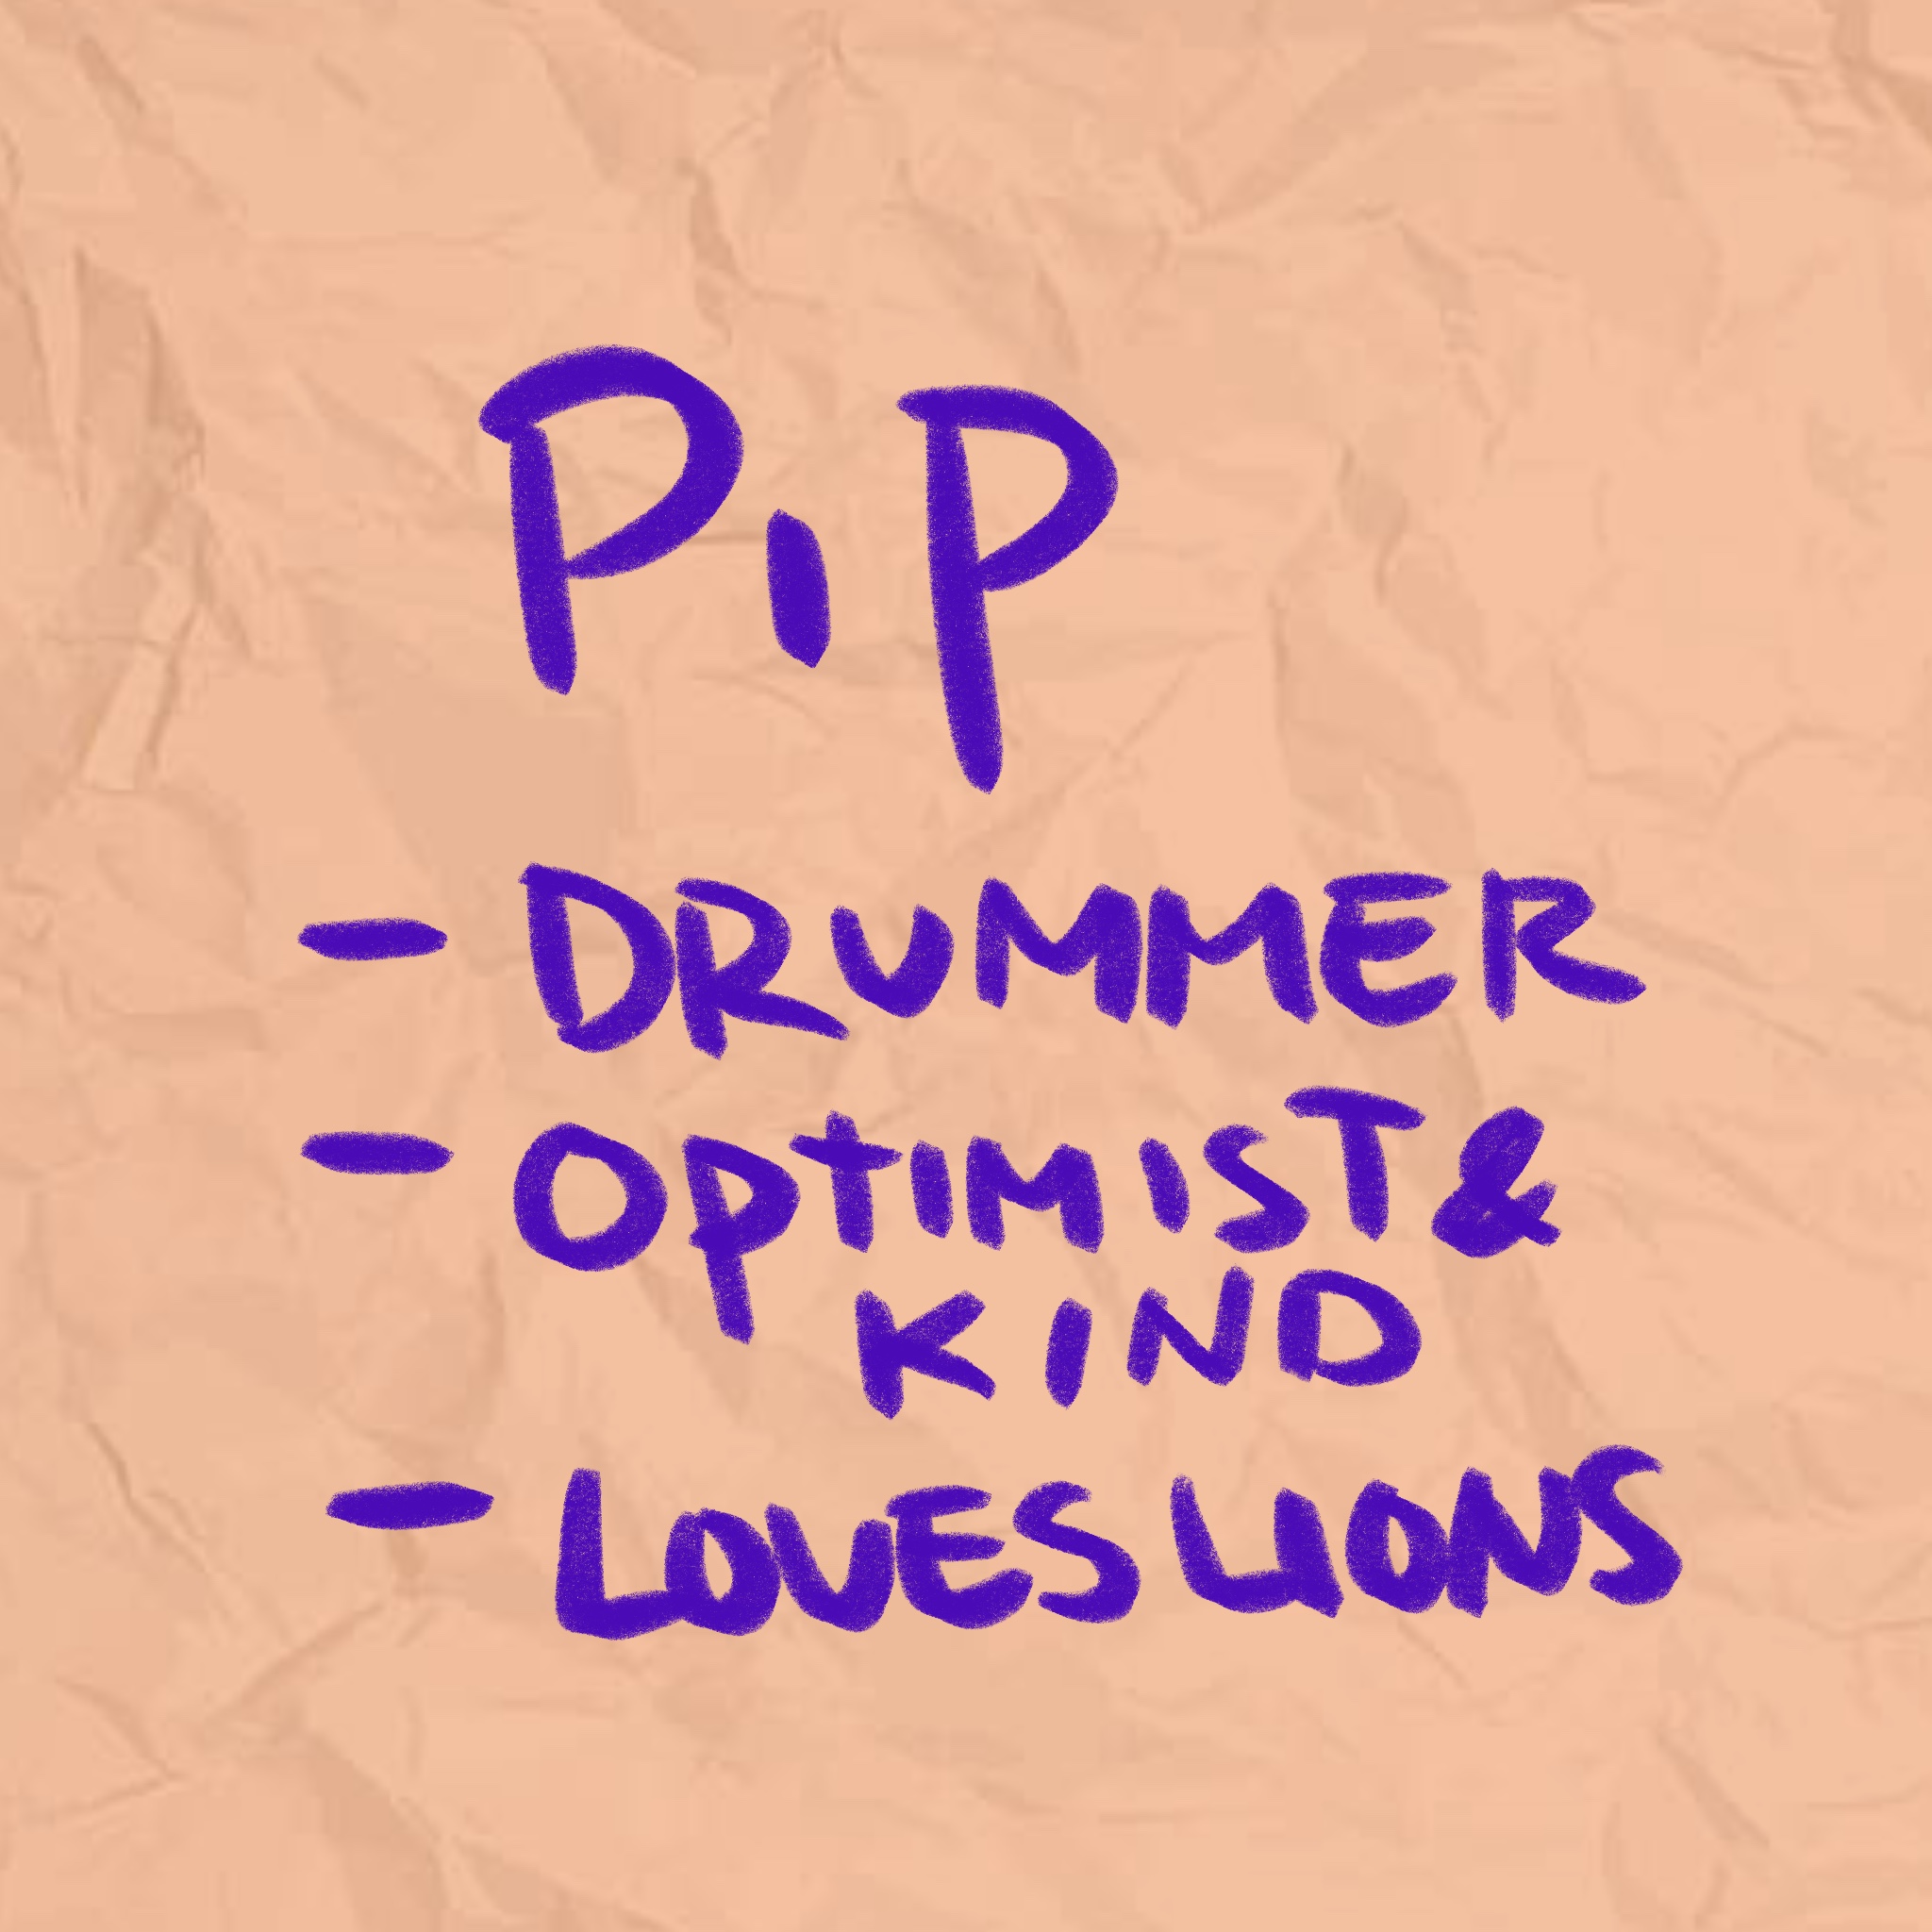 PiP
- DRUMMER
- OptIMIST &
KIND
- LOVES LIONS